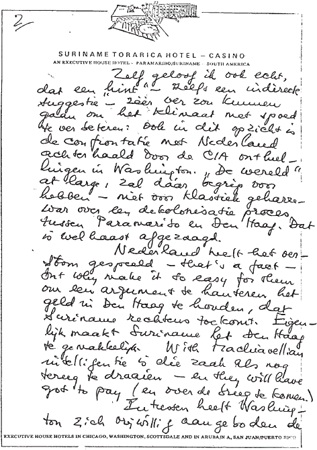 2
SURINAME TORARICA HOTEL – CASINO
AN EXECUTIVE HOUSE HOTEL – PARAMARIBO/SURINAME – SOUTH AMERICA
Zelf geloof ik ook echt,
dat een "hint" – zelfs een indirekte
suggestie – zéér ver zou kunnen
gaan om het klimaat met spoed
te verbeteren. Ook in dit opzicht is
de confrontatie met Nederland
achterhaald door de CIA onthul-
lingen in Washington. "De wereld"
at large, zal dáár begrip voor
hebben – niet voor klassiek geharre-
war over een dekolonisatie proces
tussen Paramaribo en Den Haag. Dat
is wel haast afgezaagd.
Nederland heeft het ver-
stom gespeeld – that's a fact –
but why make it so easy for them
om een argument te hanteren het
geld in Den Haag te houden, dat
Suriname rechtens toekomt. Eigen-
lijk maakt Suriname het Den Haag
te gemakkelijk. With Machiavellian
intelligentie is die zaak als nog
terug te draaien – en they will have
got to pay (en over de brug te komen)
Intussen heeft Washing-
ton zich vrijwillig aangeboden de
EXECUTIVE HOUSE HOTELS IN CHICAGO, WASHINGTON, SCOTTSDALE AND IN ARUBA N A, SAN JUAN/PUERTO RICO